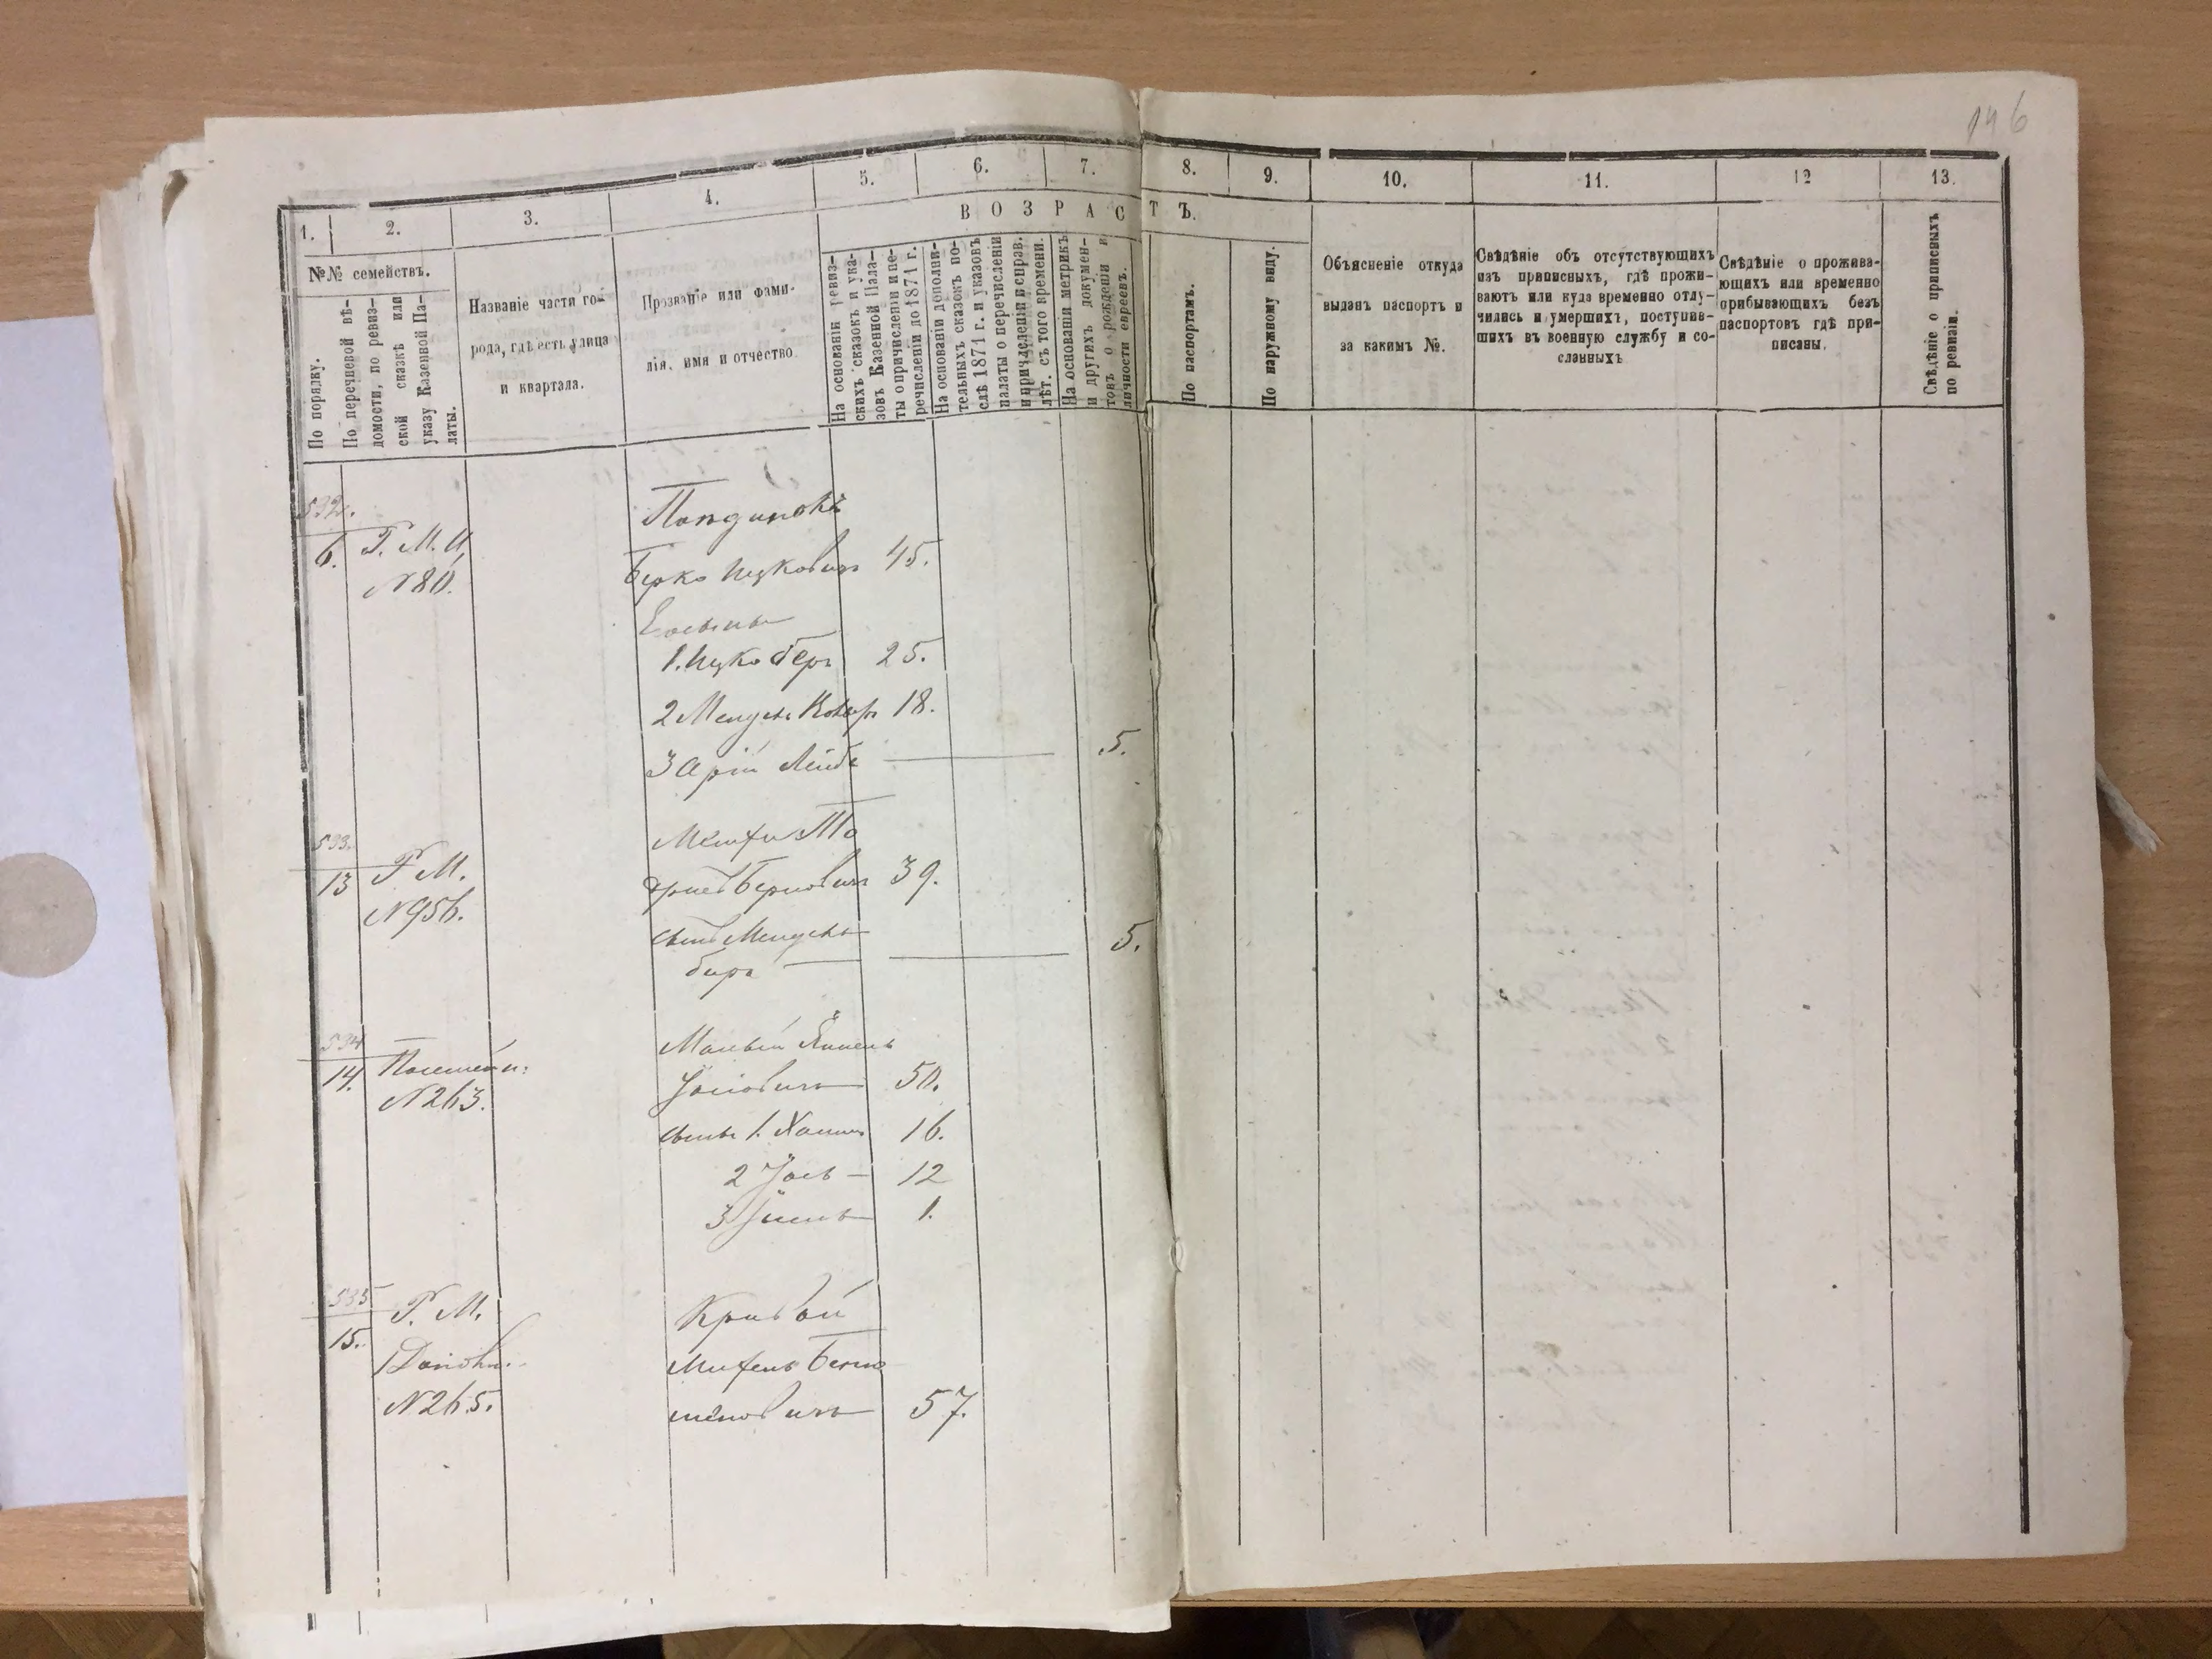 146
1.
2.
3.
4.
5.
6.
7.
8.
9.
10.
11.
12
13.
ВОЗРАСТЪ.
№№ семействъ.
По порядку.
По перечневой вѣ-
домости, по ревиз-
ской сказкѣ или
указу Казенной Па-
латы.
Названіе части го-
рода, гдѣ есть улица
и квартала.
Прозваніе или фами-
лія, имя и отчество.
На основаніи ревиз-
скихъ сказокъ и ука-
зовъ Казенной Пала-
ты о причисленіи и пе-
речисленіи до 1871 г.
На основаніи дополни-
тельныхъ сказокъ по-
слѣ 1871 г. и указовъ
палаты о перечисленіи
и причисленіи и справ.
лѣт. съ того времени.
На основаніи метрикъ
и другихъ докумен-
товъ о рожденіи и
личности евреевъ.
По паспортамъ.
По наружному виду.
Объясненіе откуда
выданъ паспортъ и
за какимъ №.
Свѣдѣніе объ отсутствующихъ
изъ приписныхъ, гдѣ прожи-
ваютъ или куда временно отлу-
чились и умершихъ, поступив-
шихъ въ военную службу и со-
сланныхъ
Свѣдѣніе о прожива-
ющихъ или временно
прибывающихъ безъ
паспортовъ гдѣ при-
писаны.
Свѣдѣніе о приписныхъ
по ревизіи.
532.
6.
Р. М. И,
N 80.
Берко Ицковичъ 45.
1. Ицко Беръ 25.
2 Мендель 18.
3 Арій Лейбъ 5.
533.
13
Р. М.
N 956.
Берковичъ 39.
сынъ Мендель
беръ 5.
534
14.
N 263.
Малый
Іосіовичъ 50.
сынъ 1. Хаимъ 16.
2 Іось 12
3 1.
535
15.
Р. М.
N 265.
Кривой
57.